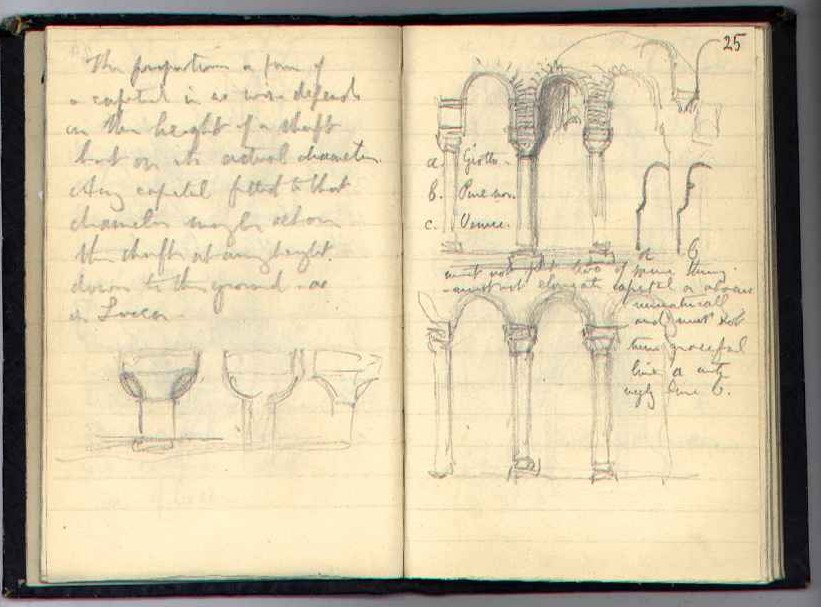 The proportion & form of
a capital in no wise depends
on the height of a shaft
but on its actual diameter.
Any capital fitted to that
diameter may be
the shaft at any height.
down to the ground - as
in Lucca.
25
a Giotto.
b.
c. Venice.
a b
must not put two of same thing.
must not elongate capital or abacus
unnaturally
and must not
turn graceful
line a into
ugly line b.